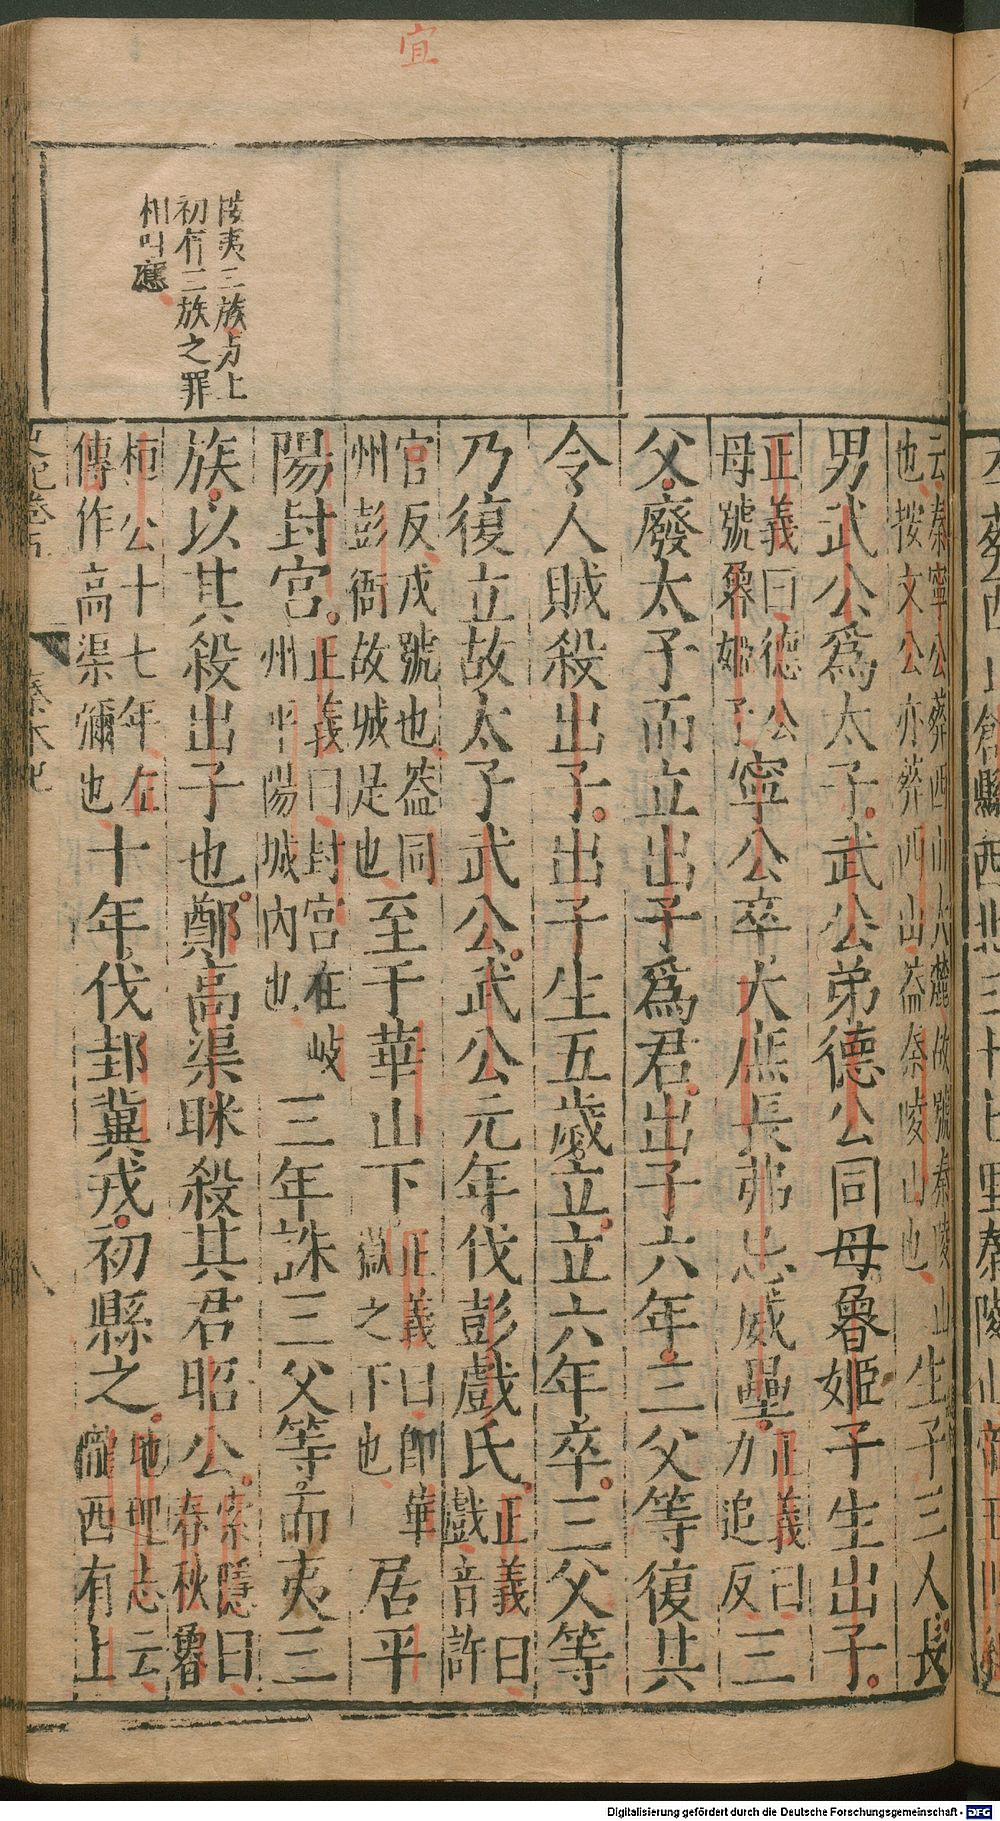 宜
陵夷三族与上
初有三族之罪
相叫應
云秦寧公葬西山大麓故號秦陵山
也按文公亦葬西山葢秦陵山也
生子三人長
男武公爲太子武公弟德公同母魯姬子生出子
正義曰德公
母號魯姬子
寧公卒大庶長弗忌威壘
正義曰
力追反
三
父廢太子而立出子爲君出子六年三父等復共
令人賊殺出子出子生五歲立立六年卒三父等
乃復立故太子武公武公元年伐彭戲氏
正義曰
戲音許
官反戎號也葢同
州彭衙故城是也
至于華山下
正義曰即華
嶽之下也
居平
陽封宮
正義曰封宮在岐
州平陽城內也
三年誅三父等而夷三
族以其殺出子也鄭高渠眯殺其君昭公
索隱曰
春秋魯
桓公十七年左
傳作高渠彌也
十年伐邽冀戎初縣之
地理志云
隴西有上
史記卷五
秦本紀
八
Digitalisierung gefördert durch die Deutsche Forschungsgemeinschaft - DFG